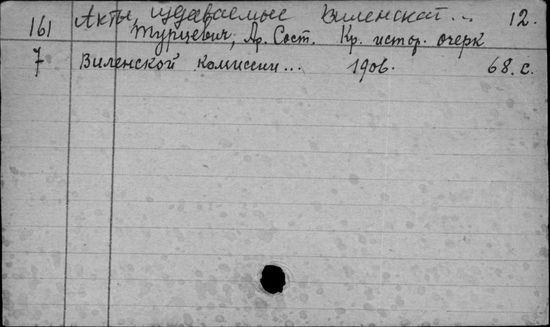 161 Акты, издаваемые Виленской... 12.
Турцевич, Ар. Сост. Кр. истор. очерк
7 Виленской комиссии... 1906. 68. с.